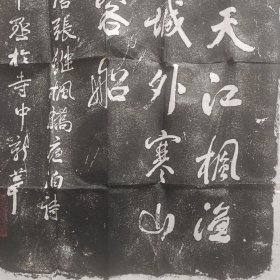 天江楓漁
城外寒山
客船
唐張繼楓橋夜泊詩
於寺中新